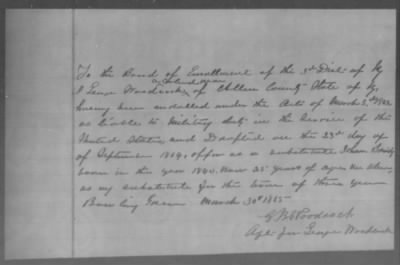 To the Board of Enrollment of the 3rd Dist of Ky
a colored man
I George Woodcock, of Allen County State of Ky,
having been enrolled under the Act of March 3rd 1863
as liable to military duty in the service of the
United States, and Drafted on the 23rd day of
of September 1864, offer as a substitute Isham
born in the year 1840. now 25 years of age, an alien
as my substitute for the term of three years
Bowling Green March 30th 1865
G B Woodcock
Agt for George Woodcock